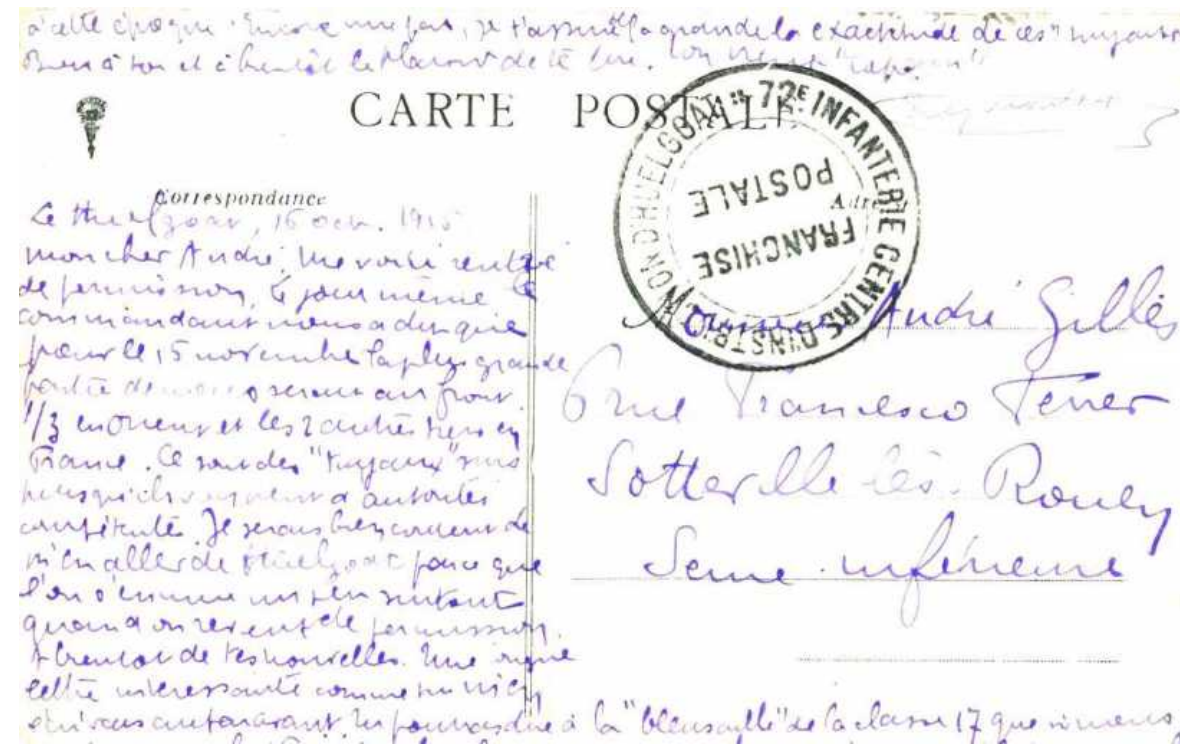 à cette époque. Encore une fois, je t'assure la grande exactitude de ces "tuyaux"
Bien à toi et à bientôt le plaisir de te lire. Ton vieux
CARTE POSTALE
72E INFANTERIE CENTRE D'INSTRUCTION D'HUELGOAT
FRANCHISE
POSTALE
Correspondance
Adresse
Le Huelgoat, 16 oct. 1915
mon cher André, me voici rentré
de permission, le jour même le
commandant nous a dit que
pour le 15 novembre la plus grande
partie de nous serons au front
1/3 en Orient et les 2 autres tiers en
France. Ce sont des "tuyaux" sûrs
puisqu'ils viennent d'autorités
compétentes. Je serais bien content de
m'en aller de Huelgoat parce que
l'on s'ennuie un peu surtout
quand on revient de permission.
A bientôt de tes nouvelles. Une
lettre intéressante comme tu
écrivais auparavant. Tu pourras dire à la "bleusaille" de la classe 17 que
Monsieur André Gilles
6 rue Francisco Ferrer
Sotteville-lès-Rouen
Seine inférieure